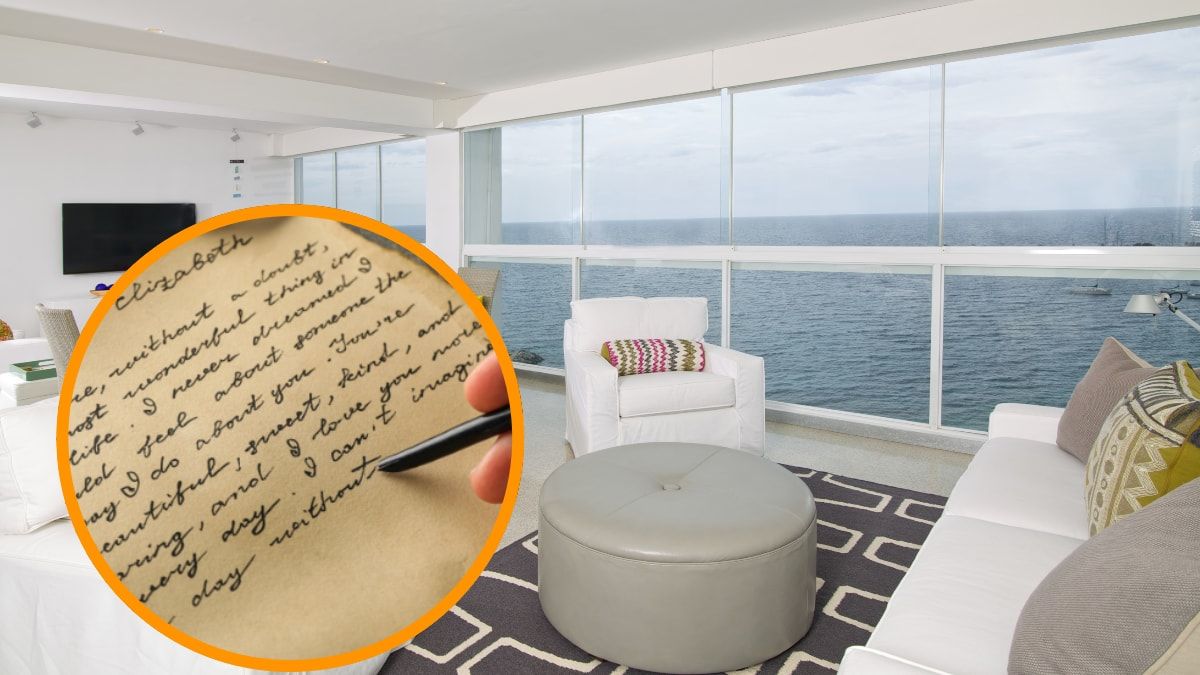 Elizabeth
re, without a doubt,
ost wonderful thing in
life. I never dreamed I
uld feel about someone the
ay I do about you. You're
eautiful, sweet, kind, and
aring, and I love you more
every day. I can't imagine
day without